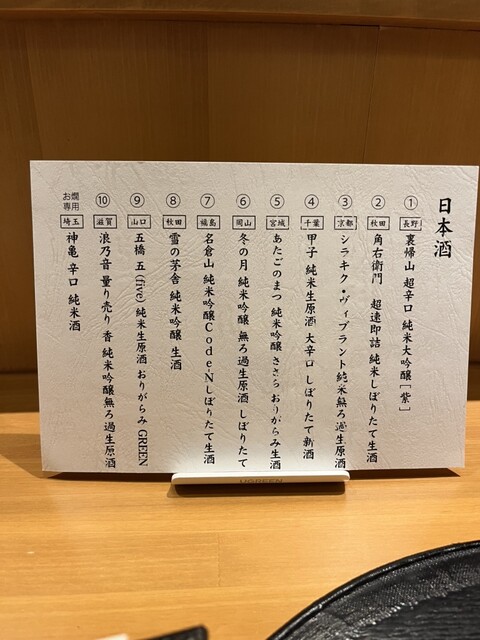 日本酒
① 長野 裏帰山 超辛口 純米大吟醸［紫］
② 秋田 角右衛門 超速即詰 純米しぼりたて生酒
③ 京都 シラキク・ヴィブラント純米無ろ過生原酒
④ 千葉 甲子 純米生原酒 大辛口 しぼりたて新酒
⑤ 宮城 あたごのまつ 純米吟醸 ささら おりがらみ生酒
⑥ 岡山 冬の月 純米吟醸 無ろ過生原酒 しぼりたて
⑦ 福島 名倉山 純米吟醸 CodeN しぼりたて生酒
⑧ 秋田 雪の茅舎 純米吟醸 生酒
⑨ 山口 五橋 五(five) 純米生原酒 おりがらみ GREEN
⑩ 滋賀 浪乃音 量り売り 香 純米吟醸無ろ過生原酒
お燗専用 埼玉 神亀 辛口 純米酒
UGREEN